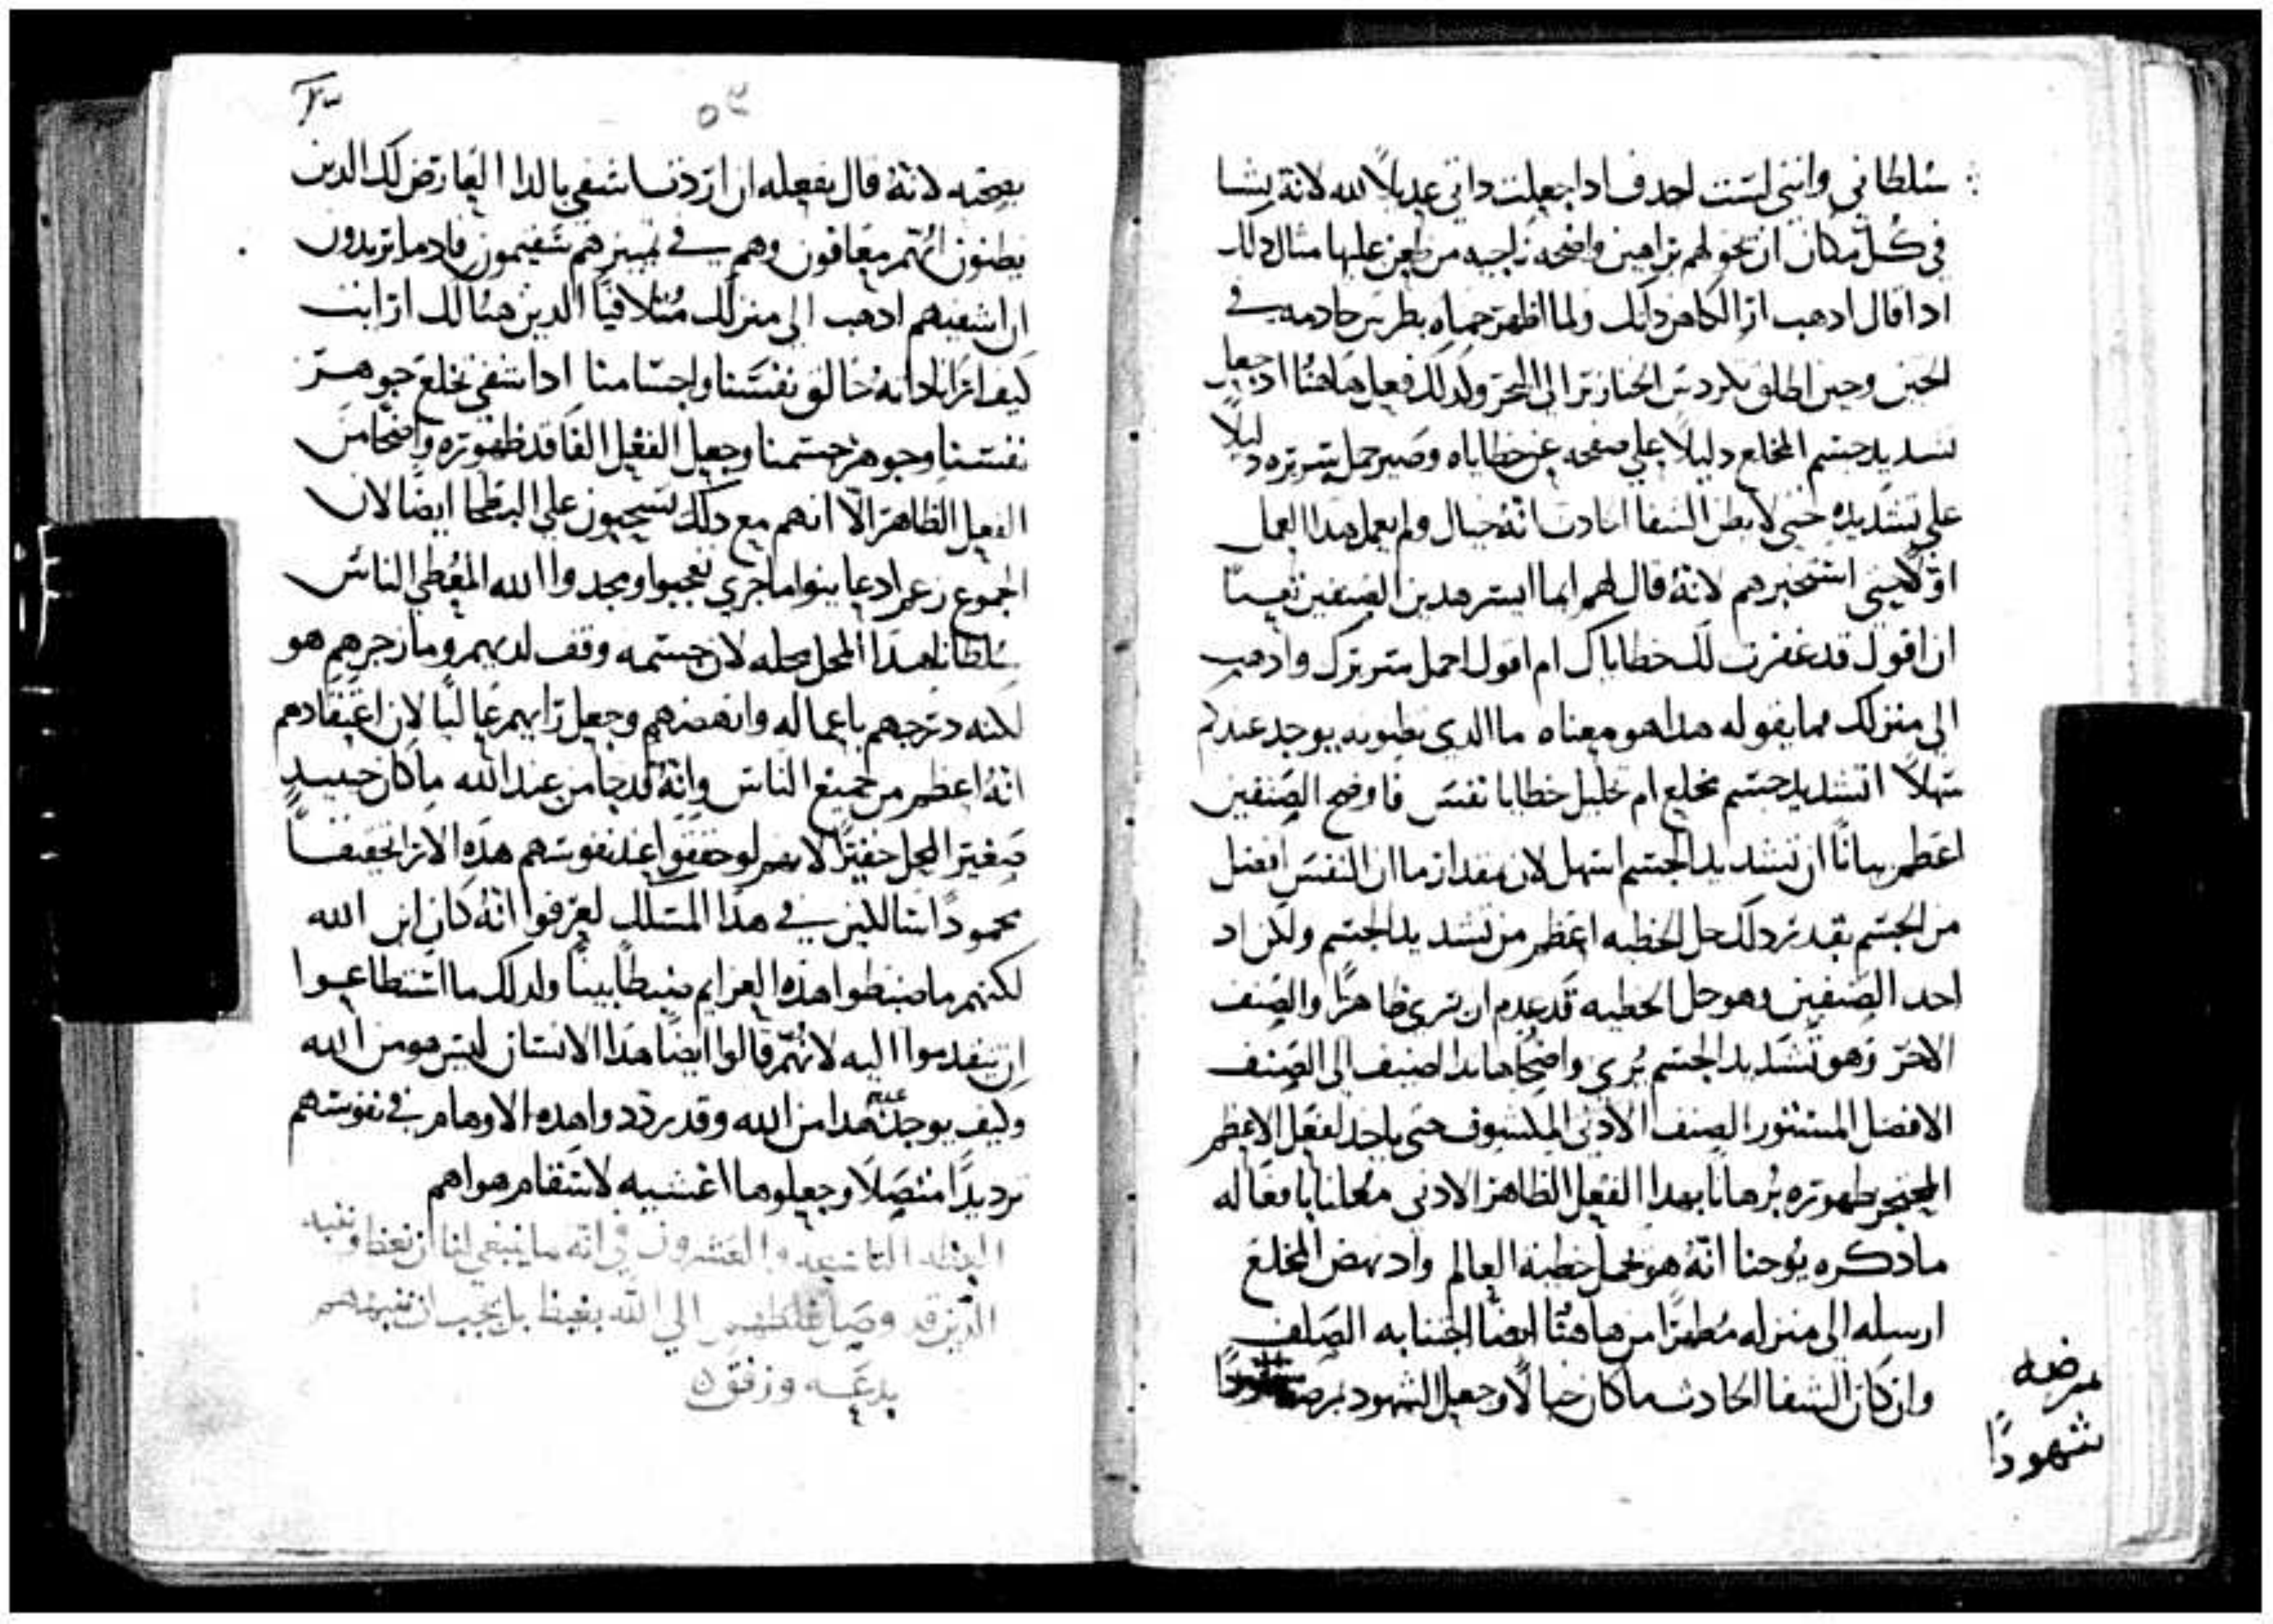 سلطاني وانني لست احد فاذا جعلت ذاتي عديلاً لله لانه يشا
في كل مكان ان نحو لهم براهين واضحه من علىها مثال ذلك
اذا قال اذهب ار الكاهن ذاتك ولما اظهر حماه بطرس خادمه في
الحين وحين اطلق الخنازير الى البحر وكذلك فعل هاهنا اذ جعل
تشديد جسم المخلع دليلاً على صفحه عن خطاياه وصير حمل سريره دليلاً
على تشديده حتى لا يظن الشفا انه خيال ولم يعمل هذا العمل
اولاً ليس استخبرهم لانه قال لهم ايما ايسر هذين الصنفين
ان اقول قد غفرت لك خطاياك ام اقول احمل سريرك واذهب
الى منزلك فما يقوله هذا هو معناه ما الذي يوجد عندكم
سهلاً اتشديد جسم مخلع ام تحليل خطايا نفس فاوضح الصنفين
اعظم بياناً ان تشديد الجسم اسهل لان مقدار ما ان النفس افضل
من الجسم بقدر ذلك حل الخطيه اعظم من تشديد الجسم ولكن اذ
احد الصنفين وهو حل الخطيه قد عدم ان يرى ظاهراً والصنف
الاخر وهو تشديد الجسم يُرى واضحاً الصنف الى الصنف
الافضل المستتور الصنف الادنى المكشوف حتى ياخد لفعل الاعظم
المحتجر ظهوره بُرهاناً بهدا الفعل الظاهر الادنى معلناً بافعاله
ما ذكره يوحنا انه هو يحمل خطية العالم واذ نهض المخلع
ارسله الى منزله مُظهراً من هاهنا ايضا اجتنابه الصلف
وان كان الشفا الحادث ما كان خيالاً وجعل الشهود
مرضه
شهوداً
٥٤
بصحته لانه قال بفعله ان اردت اشفي بالدا العارض لك الدين
يظنون انهم معافون وهم في تمييزهم سقيمون فاد ما تريدون
ان اشفيهم اذهب الى منزلك متلافياً الدين هنالك ارايت
كيف ارانا ذاته خالق نفسنا واجسامنا اذا شفى تخلع جوهر
نفسنا وجوهر جسمنا وجعل الفعل الفاقد ظهوره واضحاً من
الفعل الظاهر الا انهم مع ذلك يسحبون على البطحا ايضاً لان
الجموع زعم اد عاينوا ما جرى تعجبوا ومجدوا الله المعطي الناس
سلطاناً هذا المحل محله لان جسمه وقف لديهم وما زجرهم هو
لكنه درجهم باعماله وانهضهم وجعل رايهم عالياً لان اعتقادهم
انه اعظم من جميع الناس وانه قد جا من عند الله ما كان حينيد
صغير المحل حقيراً لانهم لو حققوا عند نفوسهم هذه الارا تحقيقاً
محموداً سالكين في هذا المسلك لعرفوا انه كان ابن الله
لكنهم ما ضبطوا هذه العزايم ضبطاً بيناً ولدلك ما استطاعوا
ان يتقدموا اليه لانهم قالوا ايضاً هذا الانسان ليس هو من الله
وكيف يوجد هذا من الله وقد رددوا هذه الاوهام في نفوسهم
ترديداً متصلاً وجعلوها اغشيه لاسقام هواهم
العظه التاسعه والعشرون في انه ما ينبغي لنا ان نعظ
الذين قد وصل غلطهم الى الله بغيظ بل يجب ان
بدعه ورفق